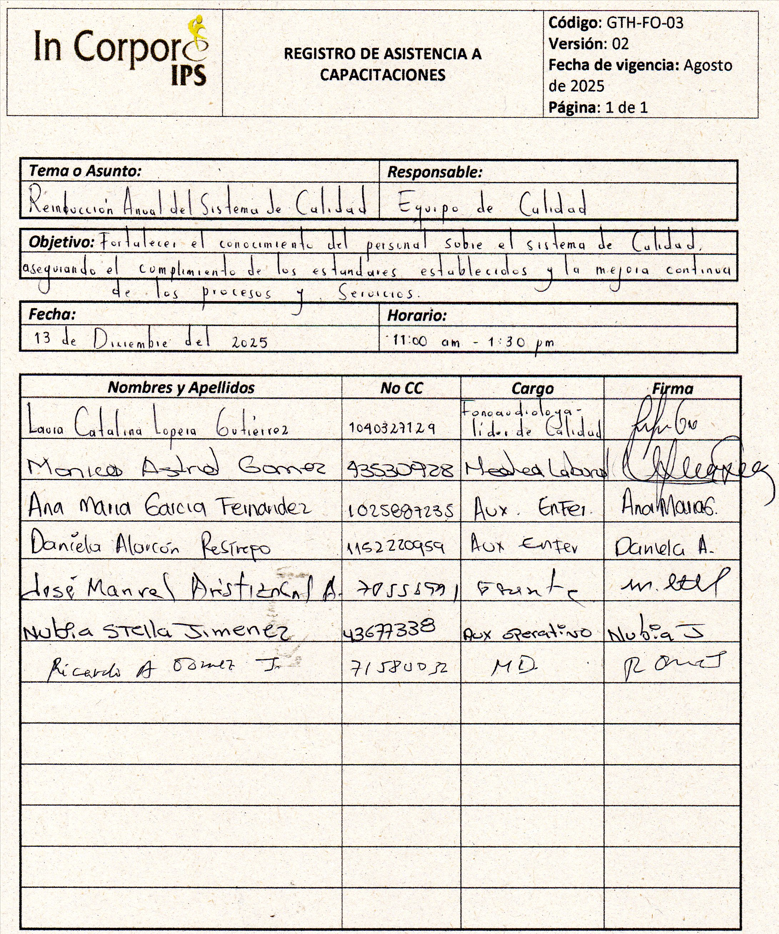 In Corpore
IPS
REGISTRO DE ASISTENCIA A
CAPACITACIONES
Código: GTH-FO-03
Versión: 02
Fecha de vigencia: Agosto
de 2025
Página: 1 de 1
Tema o Asunto: Responsable:
Reinducción Anual del Sistema de Calidad Equipo de Calidad
Objetivo: Fortalecer el conocimiento del personal sobre el sistema de Calidad,
asegurando el cumplimiento de los estandares establecidos y la mejora continua
de los procesos y Servicios.
Fecha: Horario:
13 de Diciembre del 2025 11:00 am - 1:30 pm
Nombres y Apellidos No CC Cargo Firma
Laura Catalina Lopera Gutiérrez 1040327129 Fonoaudiologa-
lider de Calidad
Monica Astrid Gomez 43530928 Medica Laboral
Ana Maria Garcia Fernandez 1025887235 Aux. Enfer. Ana Maria G.
Daniela Alarcón Restrepo 1152220959 Aux Enfer Daniela A.
José Manuel Aristizabal A.
Nubia Stella Jimenez 43677338 Aux operativo Nubia J
Ricardo A Gomez J. 71580032 MD.